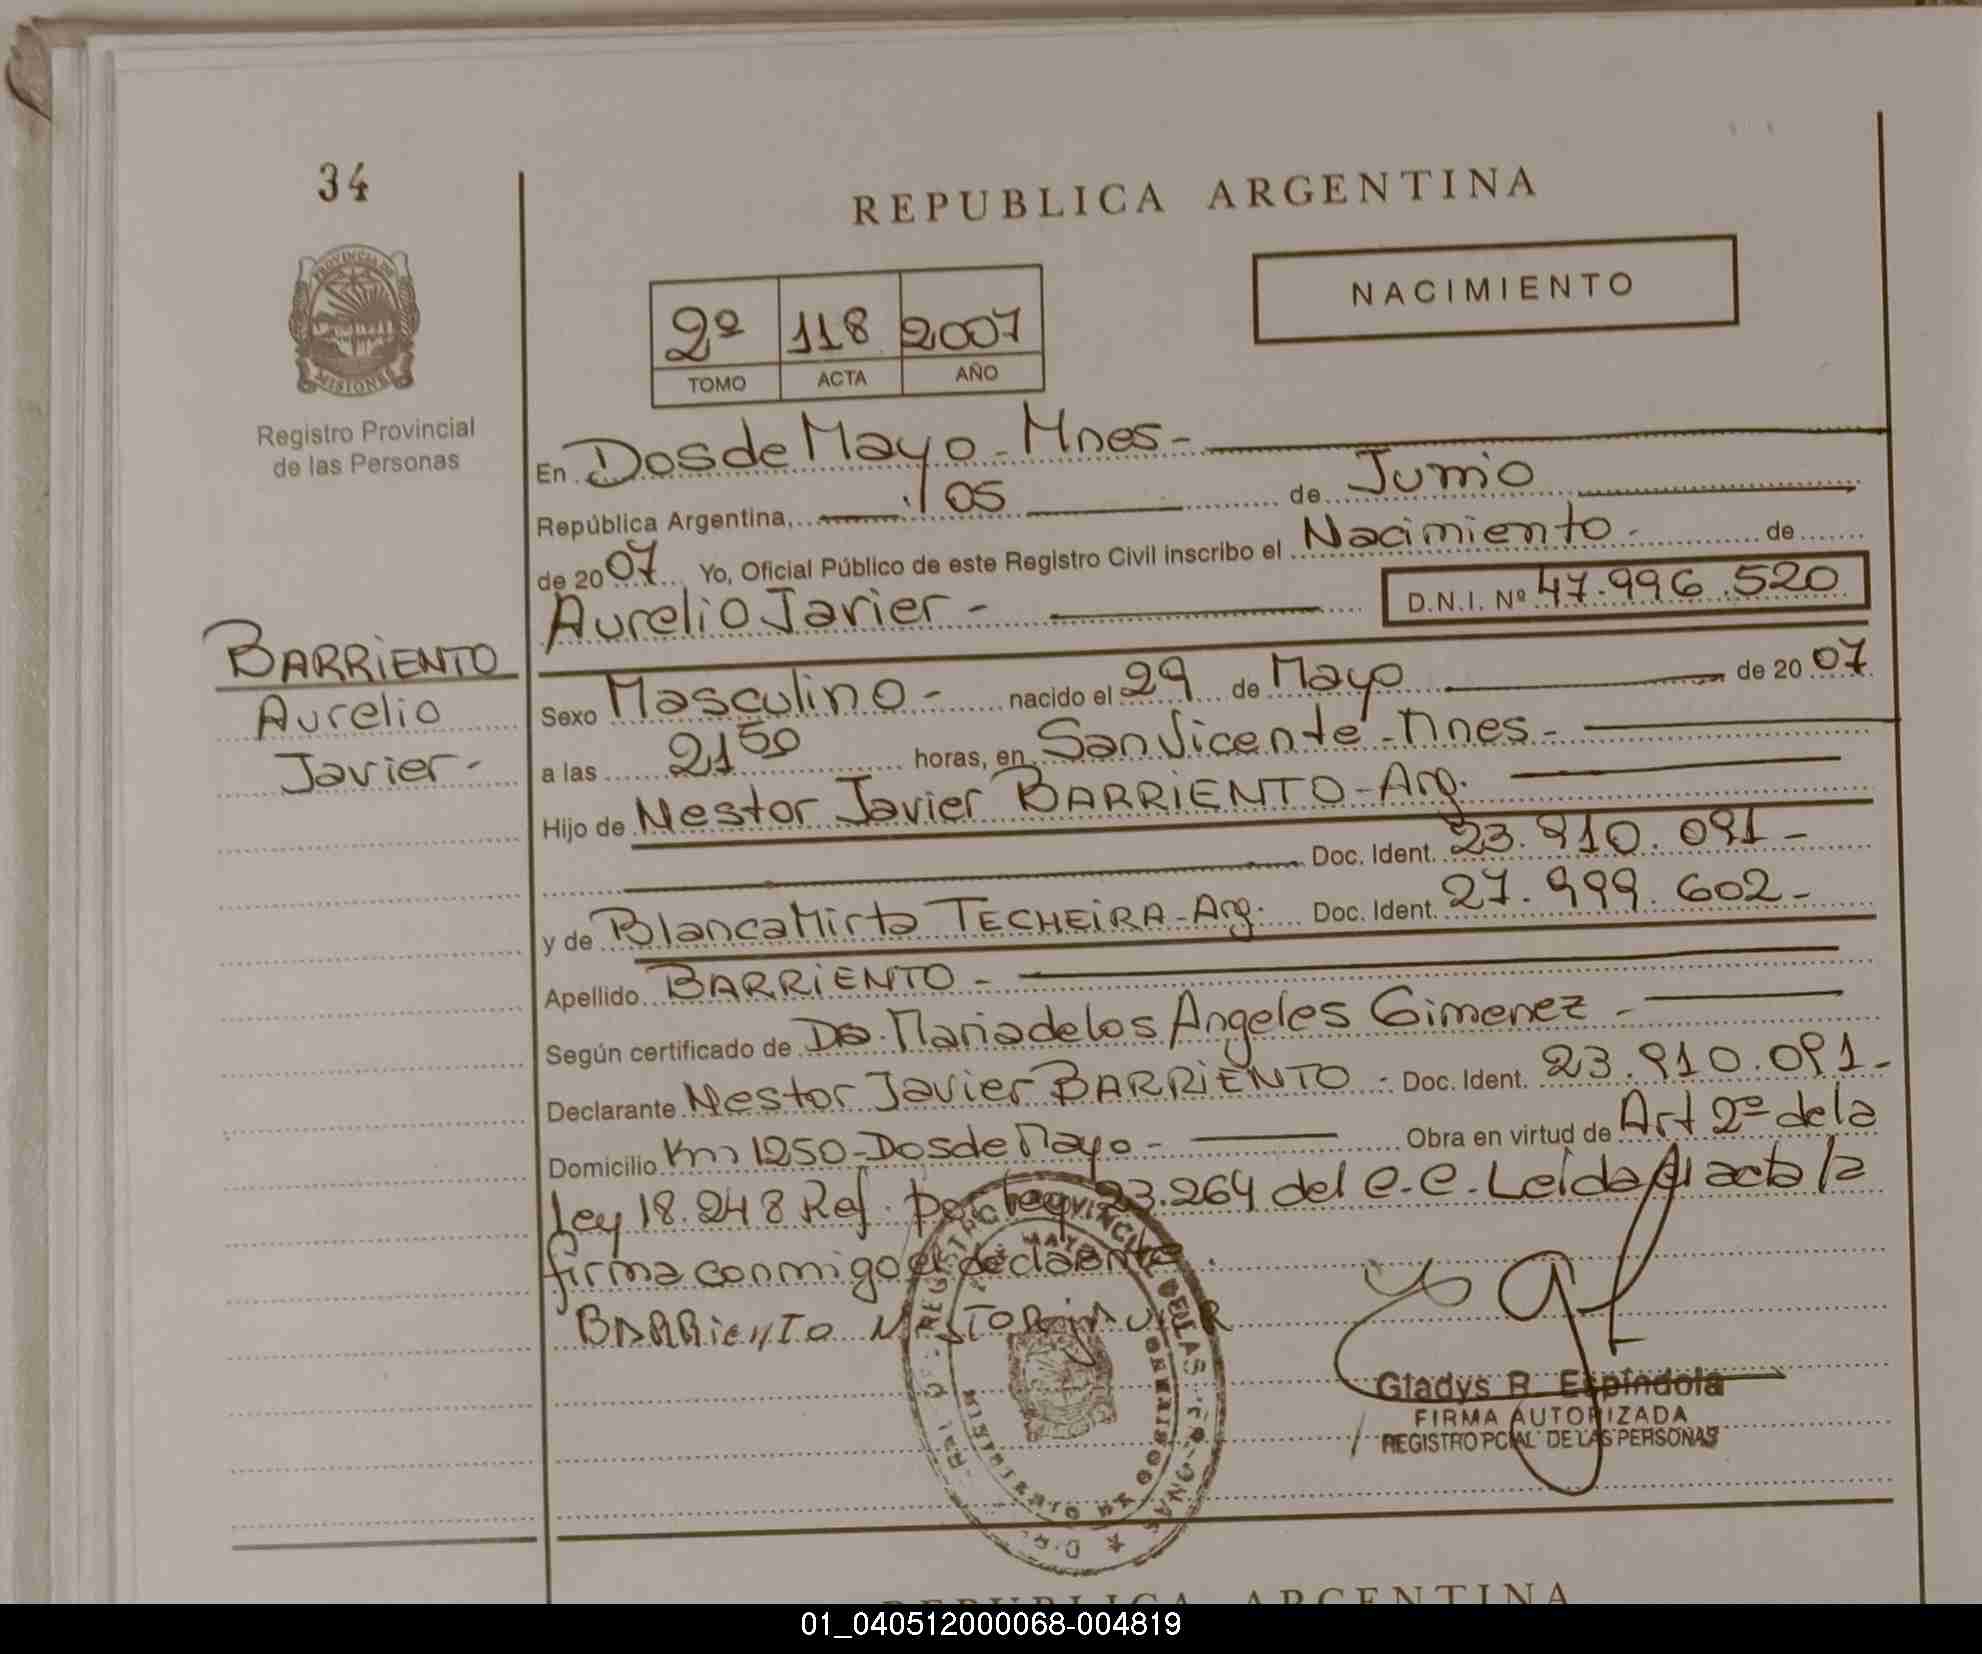 34
REPUBLICA ARGENTINA
PROVINCIA DE
MISIONES
Registro Provincial
de las Personas
NACIMIENTO
2º 118 2007
TOMO ACTA AÑO
En Dos de Mayo - Mnes -
República Argentina, 05 de Junio
de 2007 Yo, Oficial Público de este Registro Civil inscribo el Nacimiento - de
Aurelio Javier - D.N.I. Nº 47.996.520
BARRIENTO
Aurelio
Javier -
Sexo Masculino - nacido el 29 de Mayo de 2007
a las 21 50 horas, en San Vicente - Mnes -
Hijo de Nestor Javier BARRIENTO - Arg.
Doc. Ident. 23.910.091 -
y de Blanca Mirta TECHEIRA - Arg. Doc. Ident. 27.999.602 -
Apellido BARRIENTO -
Según certificado de Da. Maria de los Angeles Gimenez -
Declarante Nestor Javier BARRIENTO - Doc. Ident. 23.910.091 -
Domicilio Km 1250 - Dos de Mayo - Obra en virtud de Art 2º de la
Ley 18.248 Ref. por Ley 23.264 del C.C. Leída el acta la
firma conmigo el declarante.
BARRIENTO NESTOR JAVIER
Gladys R. Espíndola
FIRMA AUTORIZADA
REGISTRO PCIAL DE LAS PERSONAS
REPUBLICA ARGENTINA
01_040512000068-004819